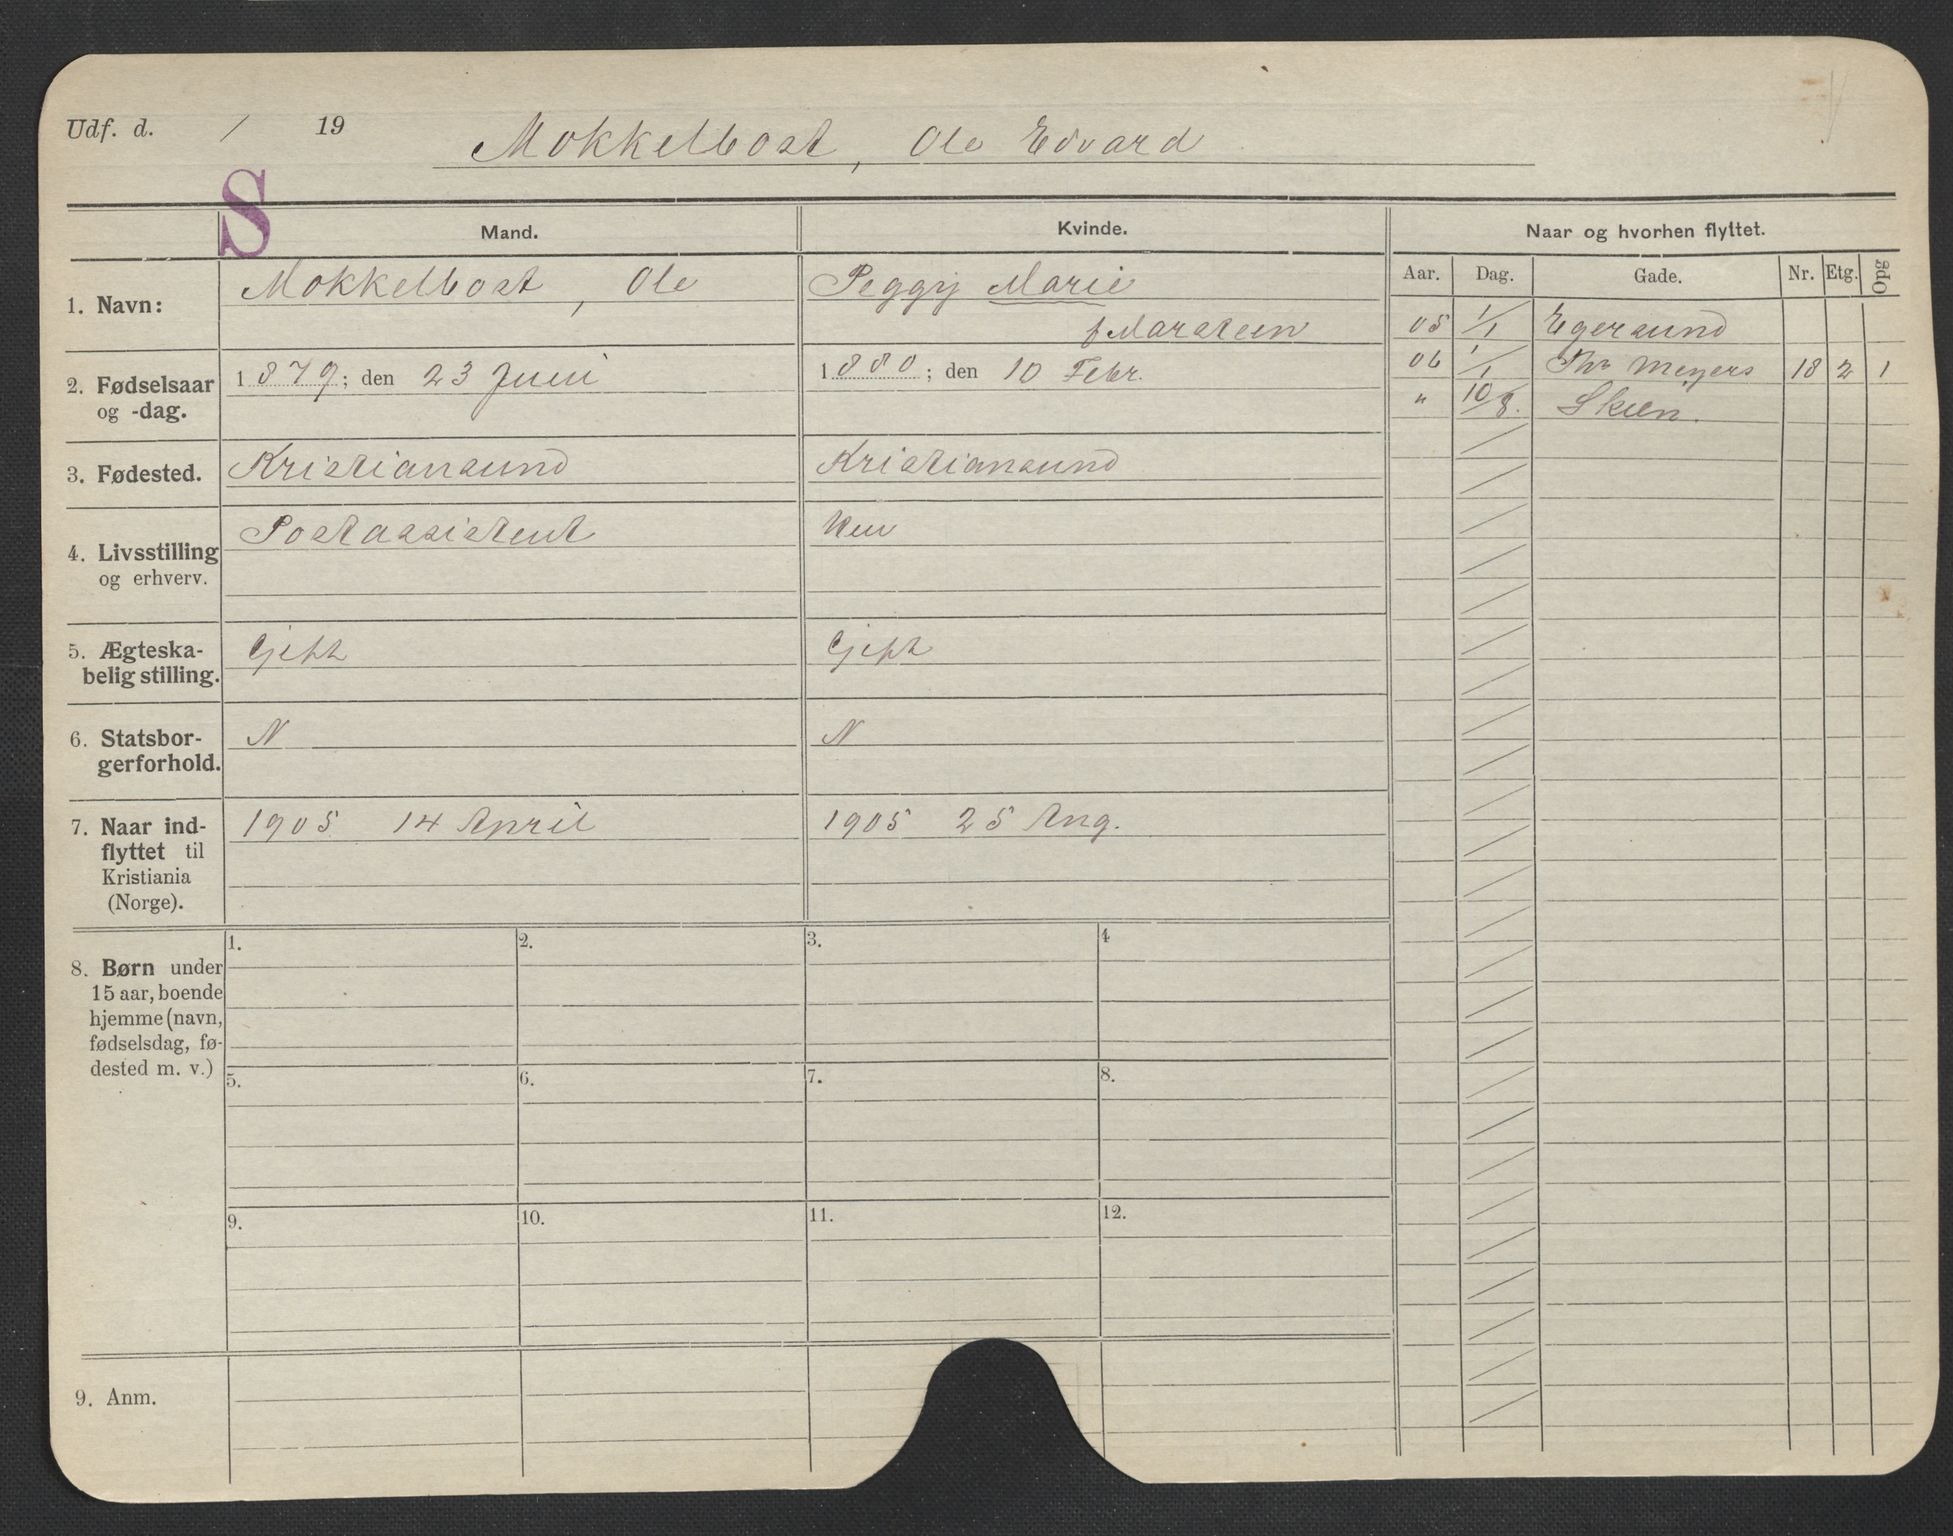 Udf. d. / 19
Mokkelbost, Ole Edvard
S
Mand. Kvinde. Naar og hvorhen flyttet.
Aar. Dag. Gade. Nr. Etg. Opg
1. Navn: Mokkelbost, Ole Peggy Marie
f Marstein
05 1/1 Egersund
2. Fødselsaar og -dag. 1879; den 23 Juni 1880; den 10 Febr.
06 1/1 Thv Meyers 18 2 1
" 10/8. Skien.
3. Fødested. Kristiansund Kristiansund
4. Livsstilling og erhverv. Postassistent
5. Ægteska-
belig stilling. Gift Gift
6. Statsbor-
gerforhold. N N
7. Naar ind-
flyttet til
Kristiania
(Norge). 1905 14 April 1905 25 Aug.
8. Børn under
15 aar, boende
hjemme (navn,
fødselsdag, fø-
dested m. v.)
1. 2. 3. 4
5. 6. 7. 8.
9. 10. 11. 12.
9. Anm.